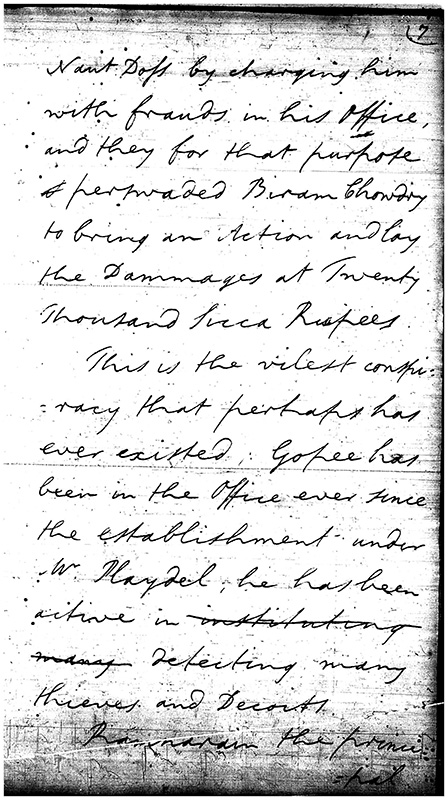 7
Naut Doss by charging him
with frauds in his Office,
and they for that purpose
perswaded Biram Chowdry
to bring an Action and lay
the Dammages at Twenty
Thousand Sicca Rupees.
This is the vilest conspi-
-racy that perhaps has
ever existed, Gopee has
been in the Office ever since
the establishment under
Mr Playdel, he has been
active in instituting
many detecting many
thieves and Decoits.
Ramnarain the princi-
-pal